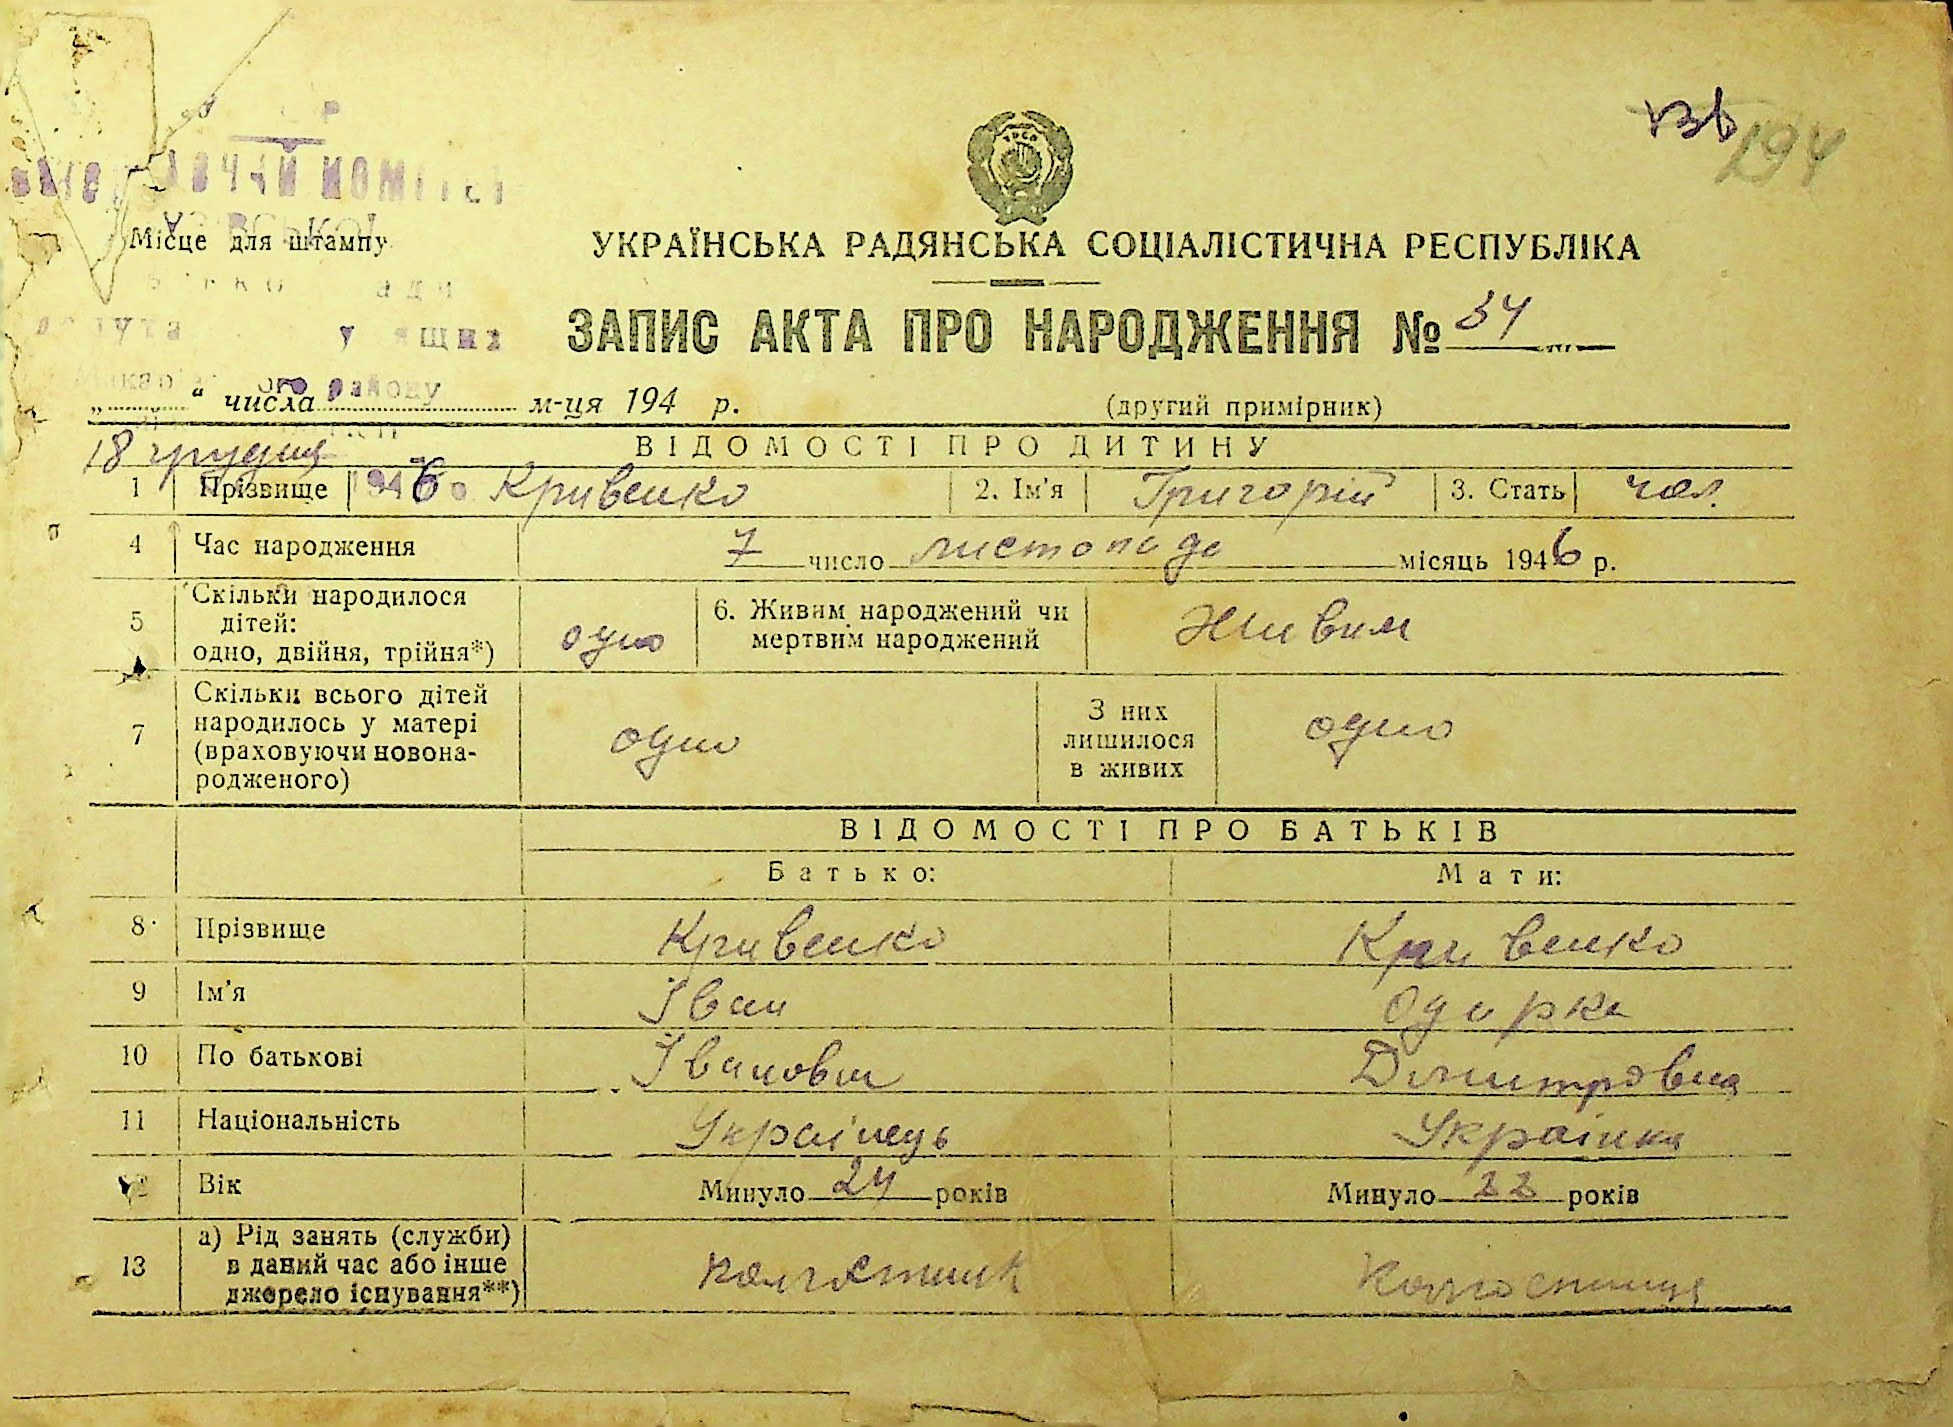 194
Місце для штампу
УКРАЇНСЬКА РАДЯНСЬКА СОЦІАЛІСТИЧНА РЕСПУБЛІКА
ЗАПИС АКТА ПРО НАРОДЖЕННЯ № 34
району
„ “ числа м-ця 194 р.
(другий примірник)
18 грудня 1946
ВІДОМОСТІ ПРО ДИТИНУ
1 Прізвище Кривенко 2. Ім'я Григорій 3. Стать чол.
4 Час народження 7 число листопада місяць 1946 р.
5 Скільки народилося дітей: одно, двійня, трійня*) одно 6. Живим народжений чи мертвим народжений Живим
7 Скільки всього дітей народилось у матері (враховуючи новонародженого) одно З них лишилося в живих одно
ВІДОМОСТІ ПРО БАТЬКІВ
Батько: Мати:
8 Прізвище Кривенко Кривенко
9 Ім'я Іван Одарка
10 По батькові Іванович Дмитровна
11 Національність Українець Українка
12 Вік Минуло 24 років Минуло 22 років
13 а) Рід занять (служби) в даний час або інше джерело існування**) Колгоспник Колгоспниця